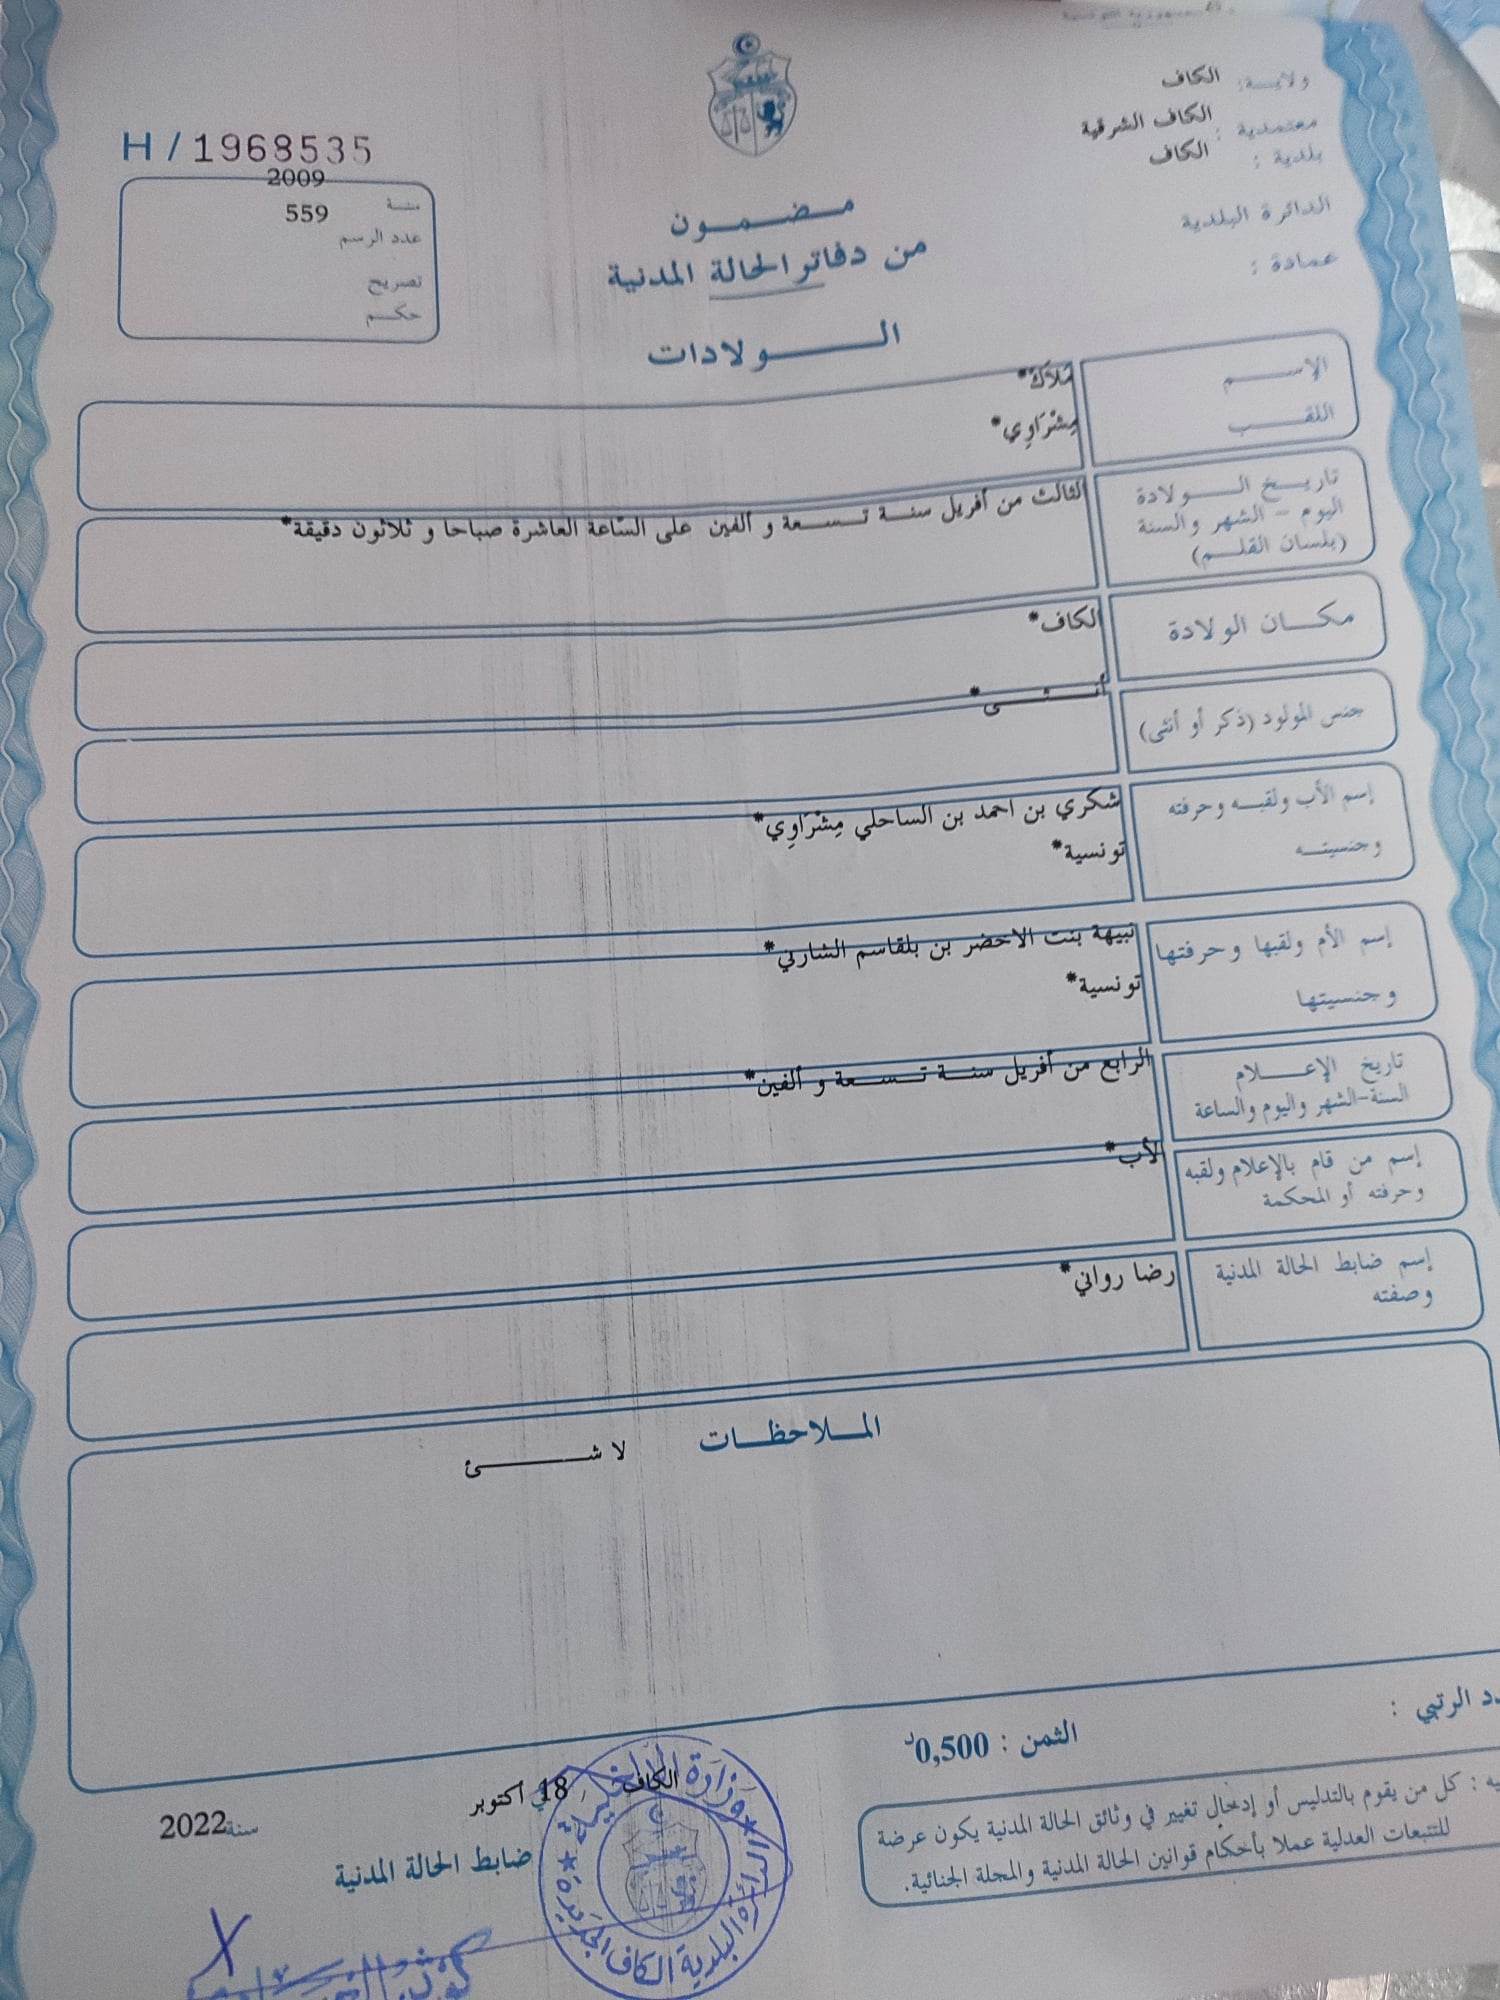 ولاية: الكاف
معتمدية : الكاف الشرقية
بلدية : الكاف
الدائرة البلدية
عمادة :
H / 1968535
سنة 2009
عدد الرسم 559
تصريح
حكم
مضمون
من دفاتر الحالة المدنية
الولادات
الإسم مَلاَكْ*
اللقب مِشْرَاوِي*
تاريخ الولادة
اليوم - الشهر والسنة
(بلسان القلم)
الثالث من أفريل سنة تسعة و ألفين على السّاعة العاشرة صباحا و ثلاثون دقيقة*
مكان الولادة الكاف*
جنس المولود (ذكر أو أنثى) أنثى*
إسم الأب ولقبه وحرفته شكري بن احمد بن الساحلي مِشْرَاوِي*
وجنسيته تونسية*
إسم الأم ولقبها وحرفتها نبيهة بنت الاخضر بن بلقاسم الشارني*
وجنسيتها تونسية*
تاريخ الإعلام
السنة-الشهر واليوم والساعة
الرابع من أفريل سنة تسعة و ألفين*
إسم من قام بالإعلام ولقبه
وحرفته أو المحكمة
الأب*
إسم ضابط الحالة المدنية
وصفته
رضا رواني*
الملاحظات
لا شئ
الرتبي :
الثمن : 0,500د
كل من يقوم بالتدليس أو إدخال تغيير في وثائق الحالة المدنية يكون عرضة
للتتبعات العدلية عملا بأحكام قوانين الحالة المدنية والمجلة الجنائية.
الكاف في 18 أكتوبر سنة 2022
ضابط الحالة المدنية
وزارة الداخلية
الدائرة البلدية الكاف